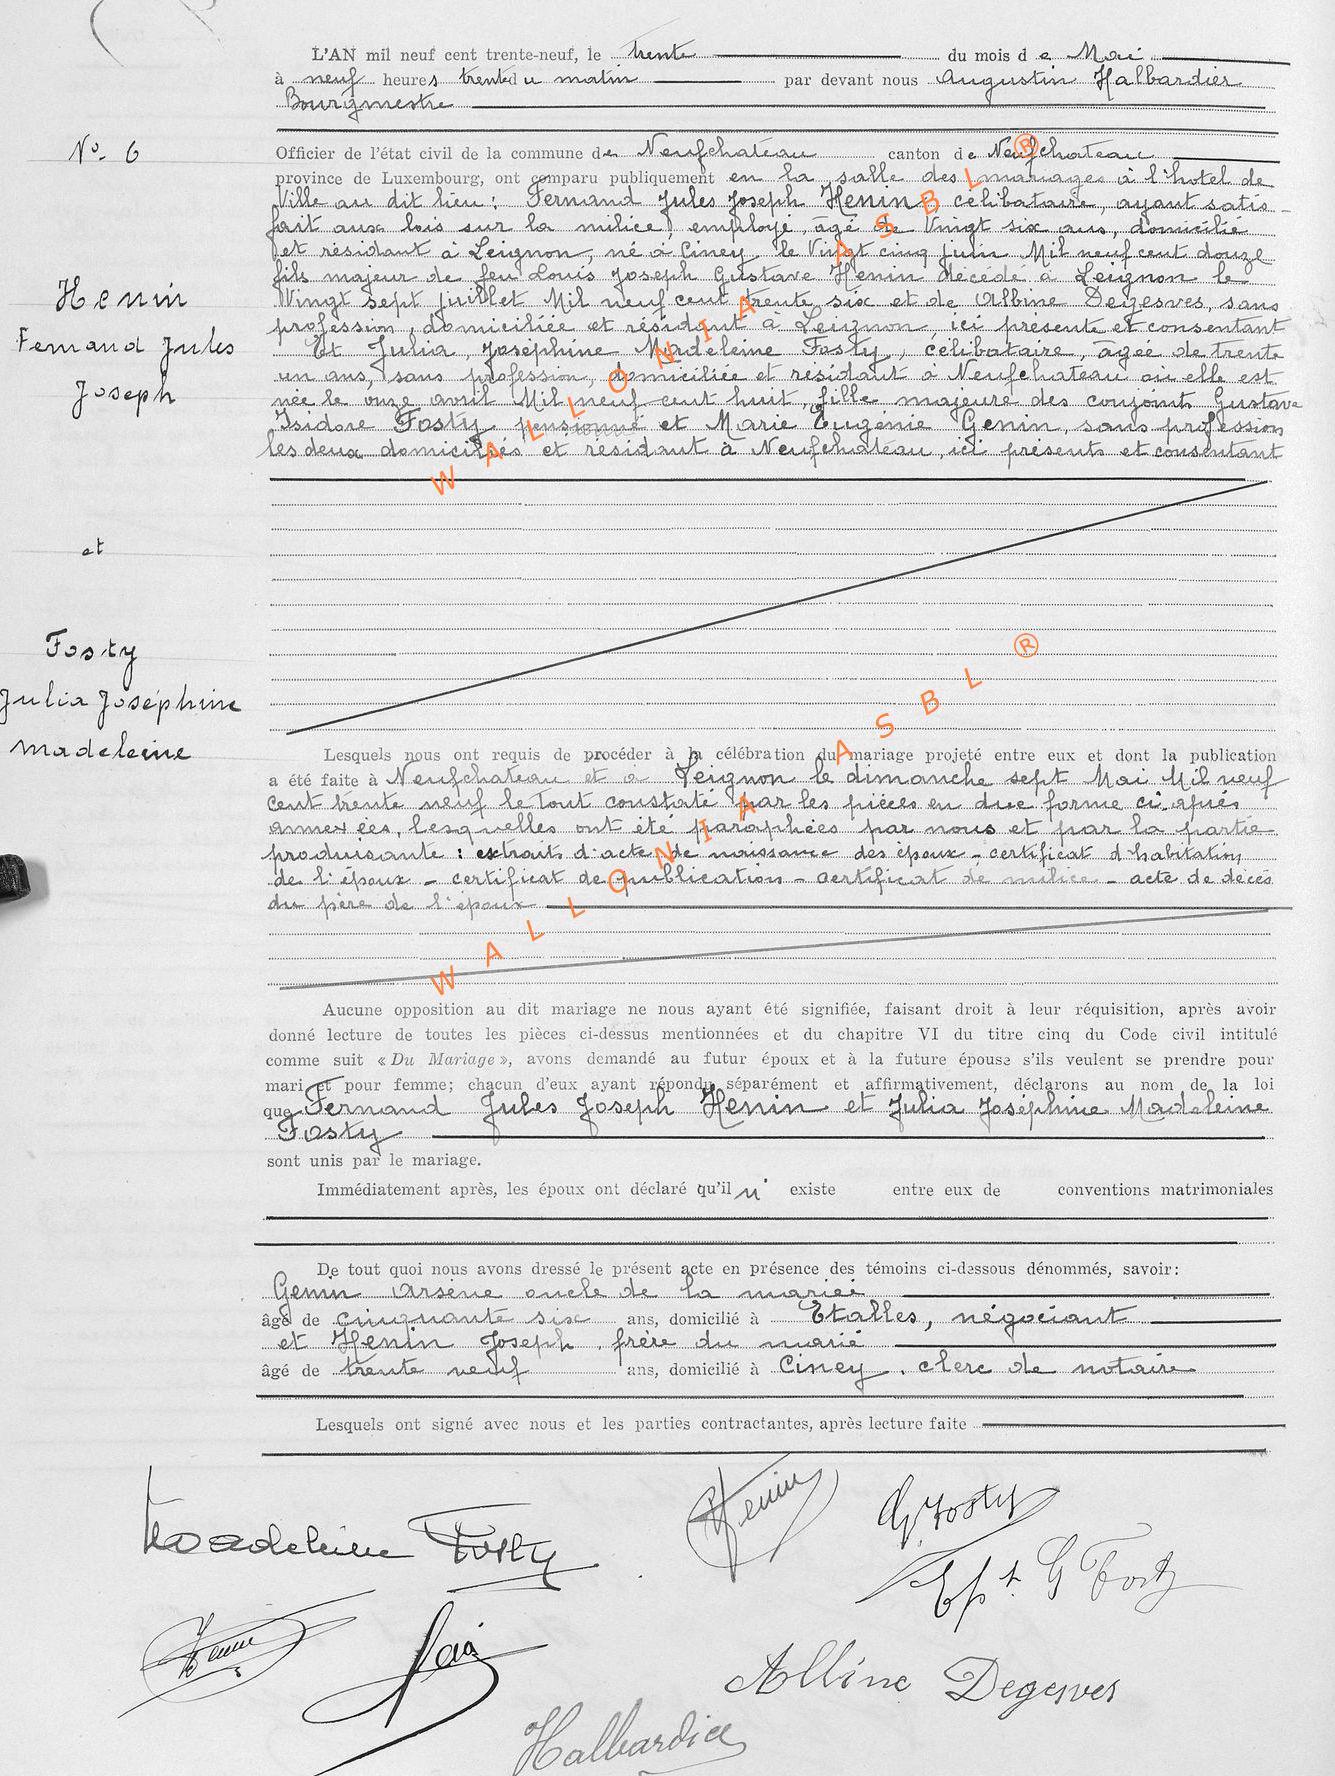 L'AN mil neuf cent trente-neuf, le trente du mois de Mai
à neuf heures trente du matin par devant nous Augustin Halbardier
Bourgmestre
No. 6
Officier de l'état civil de la commune de Neufchateau canton de Neufchateau
province de Luxembourg, ont comparu publiquement en la salle des mariages à l'hotel de
Ville au dit lieu : Fernand Jules Joseph Henin célibataire, ayant satis-
fait aux lois sur la milice, employé, âgé de Vingt six ans, domicilié
et résidant à Leignon, né à Ciney le Vingt cinq Juin Mil neuf cent douze
fils majeur de feu Louis Joseph Gustave Henin décédé à Leignon le
Vingt sept juillet Mil neuf cent trente six et de Albine Degesves, sans
profession, domiciliée et résidant à Leignon, ici présente et consentant
Henin
Fernand Jules
Joseph
Et Julia, Joséphine Madeleine Fosty, célibataire, âgée de trente
un ans, sans profession, domiciliée et residant à Neufchateau où elle est
née le onze avril Mil neuf cent huit, fille majeure des conjoints Gustave
Isidore Fosty pensionné et Marie Eugénie Genin, sans profession
les deux domiciliés et résidant à Neufchateau, ici présents et consentant
et
Fosty
Julia Joséphine
Madeleine
Lesquels nous ont requis de procéder à la célébration du mariage projeté entre eux et dont la publication
a été faite à Neufchateau et a Leignon le dimanche sept Mai Mil neuf
cent trente neuf le tout constaté par les pièces en due forme ci, après
annexées, lesquelles ont été paraphées par nous et par la partie
produisante : extraits d'acte de naissance des époux - certificat d'habitation
de l'époux - certificat de publication - certificat de milice - acte de décès
du père de l'epoux
Aucune opposition au dit mariage ne nous ayant été signifiée, faisant droit à leur réquisition, après avoir
donné lecture de toutes les pièces ci-dessus mentionnées et du chapitre VI du titre cinq du Code civil intitulé
comme suit « Du Mariage », avons demandé au futur époux et à la future épouse s'ils veulent se prendre pour
mari et pour femme; chacun d'eux ayant répondu séparément et affirmativement, déclarons au nom de la loi
que Fernand Jules Joseph Henin et Julia Joséphine Madeleine
Fosty
sont unis par le mariage.
Immédiatement après, les époux ont déclaré qu'il n' existe entre eux de conventions matrimoniales
De tout quoi nous avons dressé le présent acte en présence des témoins ci-dessous dénommés, savoir:
Genin Arsène oncle de la mariée
âgé de cinquante six ans, domicilié à Etalles, négociant
et Henin Joseph, frère du marié
âgé de trente neuf ans, domicilié à Ciney, clerc de notaire
Lesquels ont signé avec nous et les parties contractantes, après lecture faite
Madeleine Fosty
Henin
G. Fosty
Ep t G Fosty
Henin
Albine Degesves
Halbardier
WALLONIA ASBL ®
WALLONIA ASBL ®